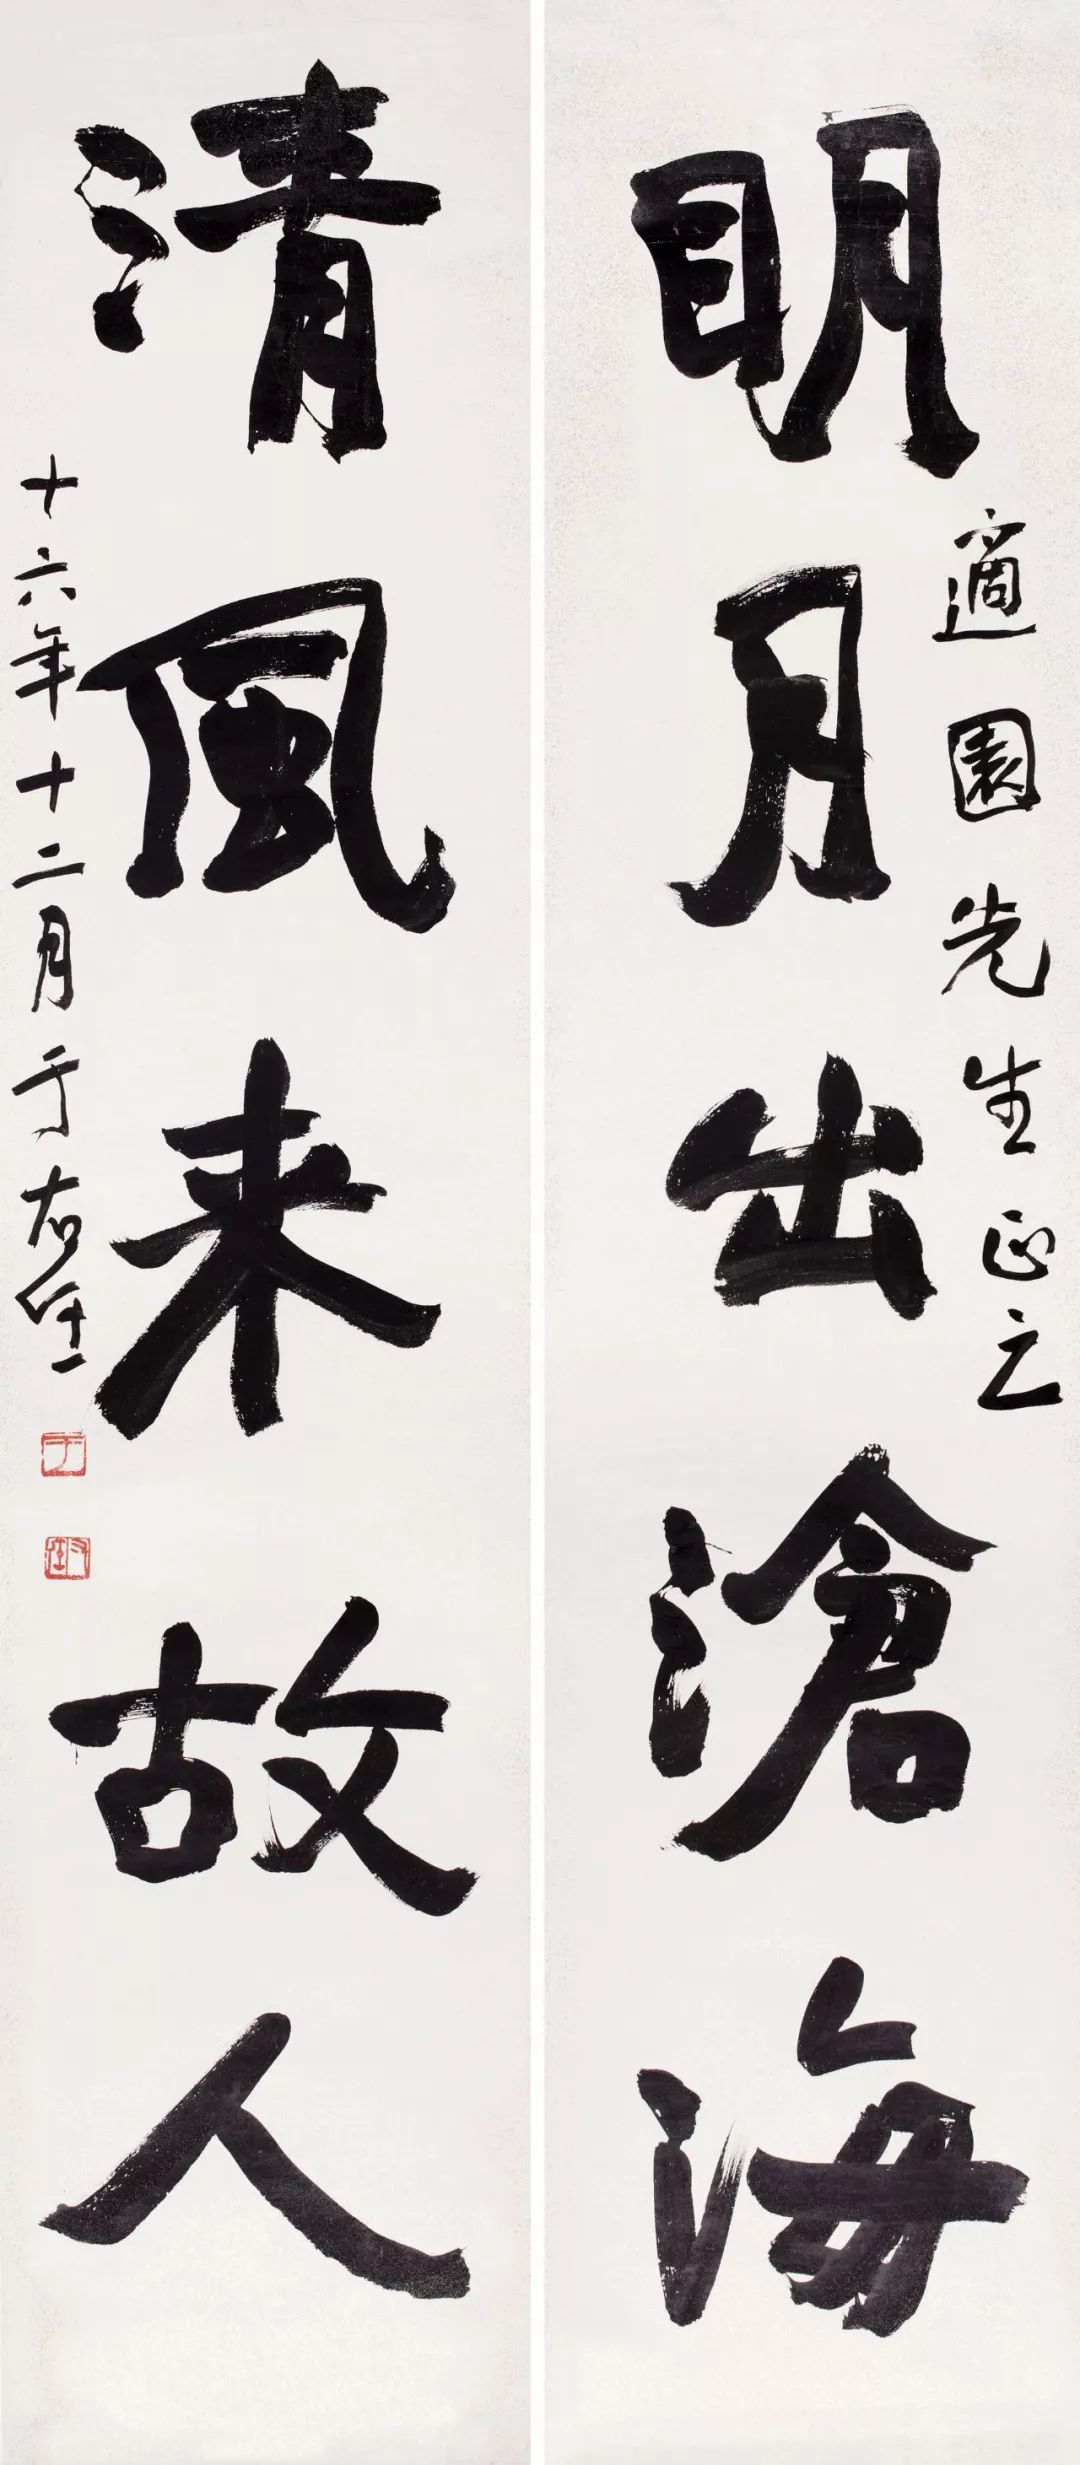 明月出滄海
適園先生正之
清風来故人
十六年十二月于右任